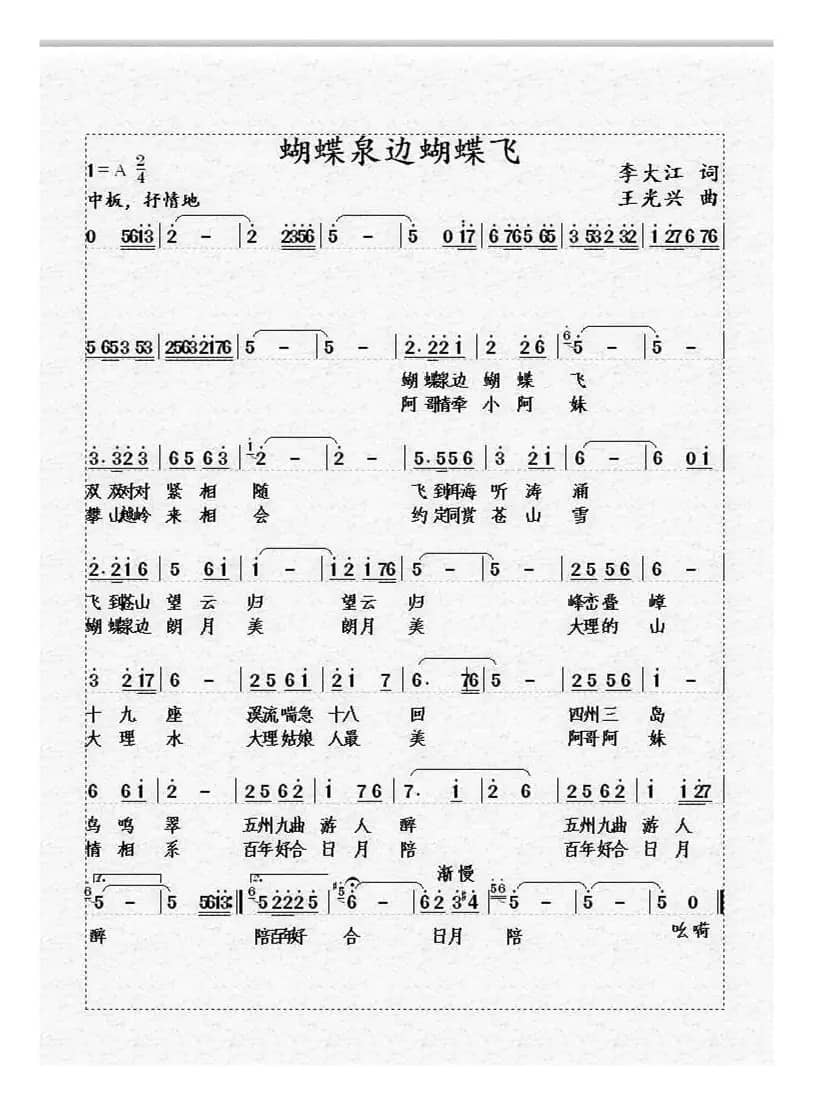 蝴蝶泉边蝴蝶飞
1=A 2/4
李大江 词
中板，抒情地
王光兴 曲
0 5613 | 2 - | 2 2356 | 5 - | 5 0 17 | 6 765 65 | 3 532 32 | 1 276 76 |
5 653 53 | 2563 2176 | 5 - | 5 - | 2. 22 1 | 2 26 | 5 - | 5 - |
蝴 蝶泉边 蝴 蝶 飞
阿 哥情牵 小 阿 妹
3. 32 3 | 65 63 | 2 - | 2 - | 5. 55 6 | 3 21 | 6 - | 6 01 |
双 双对对 紧 相 随 飞 到洱海 听 涛 涌
攀 山越岭 来 相 会 约 定同赏 苍 山 雪
2. 21 6 | 5 61 | 1 - | 12 176 | 5 - | 5 - | 25 56 | 6 - |
飞 到苍山 望 云 归 望云 归 峰峦叠 嶂
蝴 蝶泉边 朗 月 美 朗月 美 大理的 山
3 217 | 6 - | 25 61 | 21 7 | 6. 76 | 5 - | 25 56 | 1 - |
十 九 座 溪流喘急 十八 回 四州三 岛
大 理 水 大理姑娘 人最 美 阿哥阿 妹
6 61 | 2 - | 25 62 | 1 76 | 7. 1 | 2 6 | 25 62 | 1 127 |
鸟 鸣 翠 五州九曲 游 人 醉 五州九曲 游 人
情 相 系 百年好合 日 月 陪 百年好合 日 月
渐 慢
1. 5 - | 5 5613 :| 2. 5 222 5 | 6 - | 62 3#4 | 5 - | 5 - | 5 0 ‖
醉 陪百年好 合 日月 陪 吆嗬